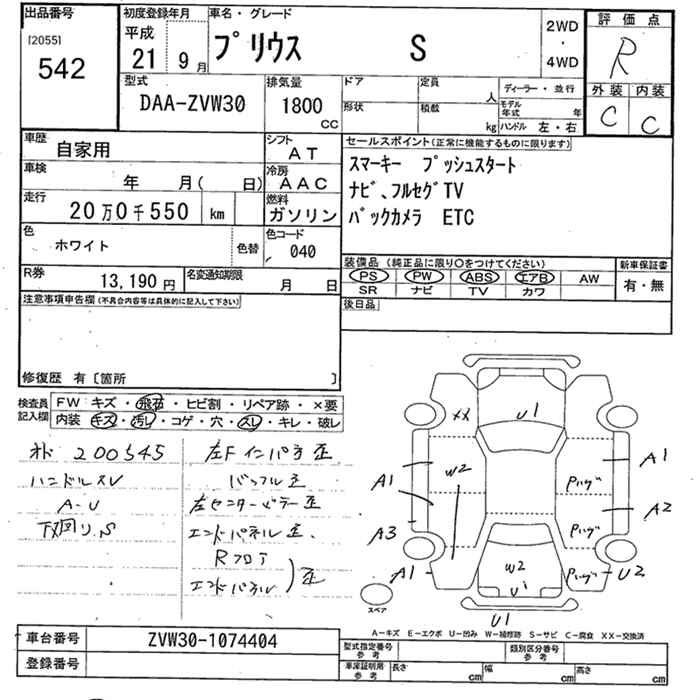 出品番号
[2055]
542
初度登録年月
平成
21 9月
車名・グレード
プリウス S
2WD
・
4WD
評価点
R
外装 内装
C C
型式
DAA-ZVW30
排気量
1800
CC
ドア
形状
定員
人
積載
kg
ディーラー・並行
モデル年式 年
ハンドル 左・右
車歴
自家用
シフト
AT
車検
年 月( 日)
冷房
AAC
走行
20万0千550 km
燃料
ガソリン
色
ホワイト
色替
色コード
040
R券
13,190円
名変通知期限
月 日
セールスポイント(正常に機能するものに限ります)
スマーキー プッシュスタート
ナビ、フルセグTV
バックカメラ ETC
装備品(純正品に限り○をつけてください)
PS PW ABS エアB AW
SR ナビ TV カワ
新車保証書
有・無
後日品
注意事項申告欄(不具合内容等は具体的に記入して下さい)
修復歴 有〔箇所 〕
検査員
記入欄
FW キズ・飛石・ヒビ割・リペア跡・×要
内装 キズ・汚レ・コゲ・穴・スレ・キレ・破レ
オド 200545
ハンドルスレ
A-U
下回り.S
左Fインパネ歪
バッフル歪
左センターピラー歪
エンドパネル歪.
Rフロア
エンドパネル
)歪
XX
U1
W2
A1
A3
A1
Pハゲ
Pハゲ
Pハゲ
A1
A2
U2
W2
U1
U1
スペア
A-キズ E-エクボ U-凹み W-補修跡 S-サビ C-腐食 XX-交換済
車台番号
ZVW30-1074404
登録番号
型式指定番号
参考
類別区分番号
参考
車庫証明用
参考
長さ cm 幅 cm 高さ cm